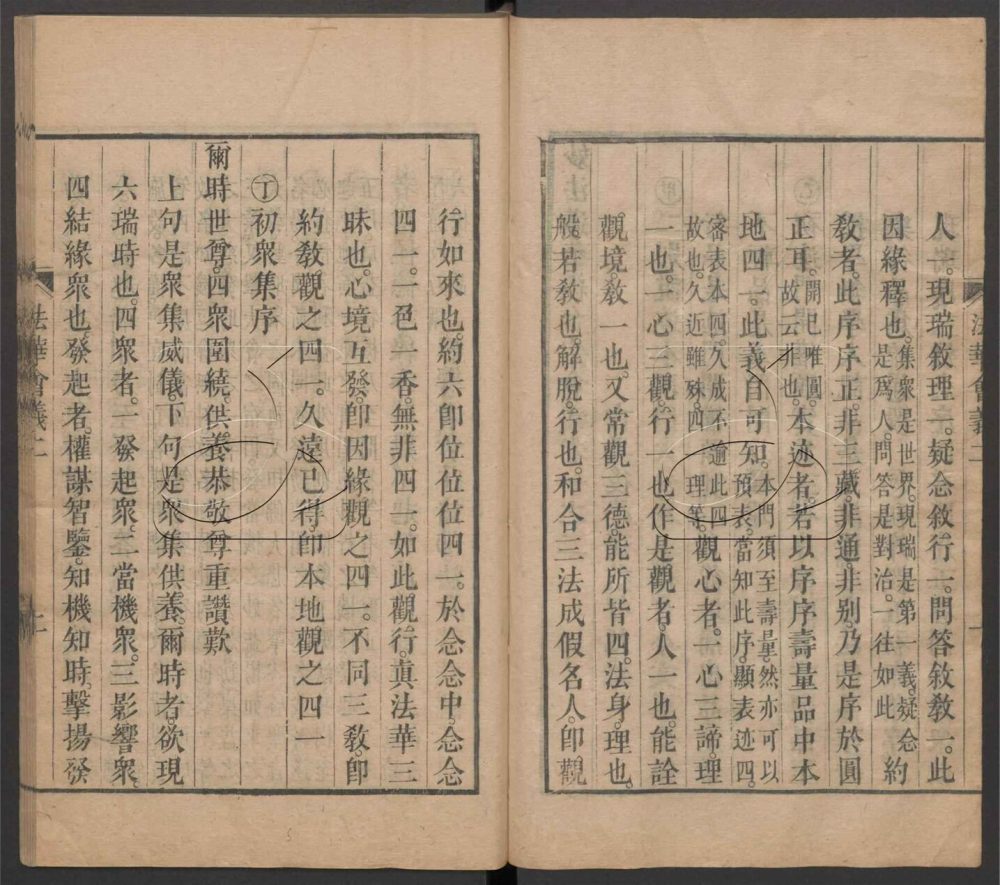 人一。現瑞敘理一。疑念敘行一。問答敘教一。此
因緣釋也。集衆是世界。現瑞是第一義。疑念是爲人。問答是對治。一往如此約
教者。此序序正。非三藏。非通。非別。乃是序於圓
正耳。開巳唯圓。故云非也。本迹者。若以序序壽量品中本
地四一。此義自可知。本門須至壽量。然亦可以預表。當知此序。顯表迹四。
密表本四。久成不逾此四故也。久近雖殊。四一理等。觀心者。一心三諦。理
一也。一心三觀。行一也。作是觀者。人一也。能詮
觀境。教一也。又常觀三德。能所皆四。法身。理也。
般若。教也。解脫。行也。和合三法成假名人。卽觀
法華會義二
行如來也。約六卽位位位四一。於念念中。念念
四一。一色一香。無非四一。如此觀行。眞法華三
昧也。心境互發。卽因緣觀之四一。不同三敎。卽
約敎觀之四一。久遠已得。卽本地觀之四一
丁初衆集序
爾時世尊。四衆圍繞。供養恭敬尊重讚歎
上句是衆集威儀。下句是衆集供養。爾時者。欲現
六瑞時也。四衆者。一發起衆。二當機衆。三影響衆。
四結緣衆也。發起者。權謀智鑒。知機知時。擊揚發
法華會義二